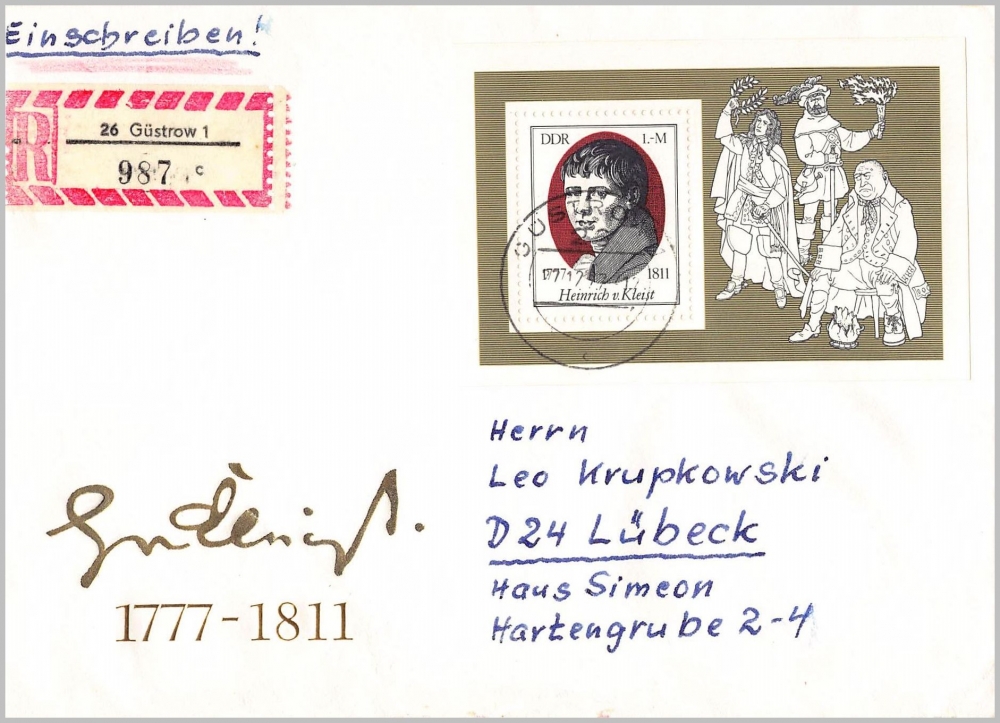 Einschreiben!
R
26 Güstrow 1
987 c
DDR 1.-M
1777 1811
Heinrich v. Kleist
Herrn
Leo Krupkowski
D24 Lübeck
Haus Simeon
Hartengrube 2-4
1777-1811